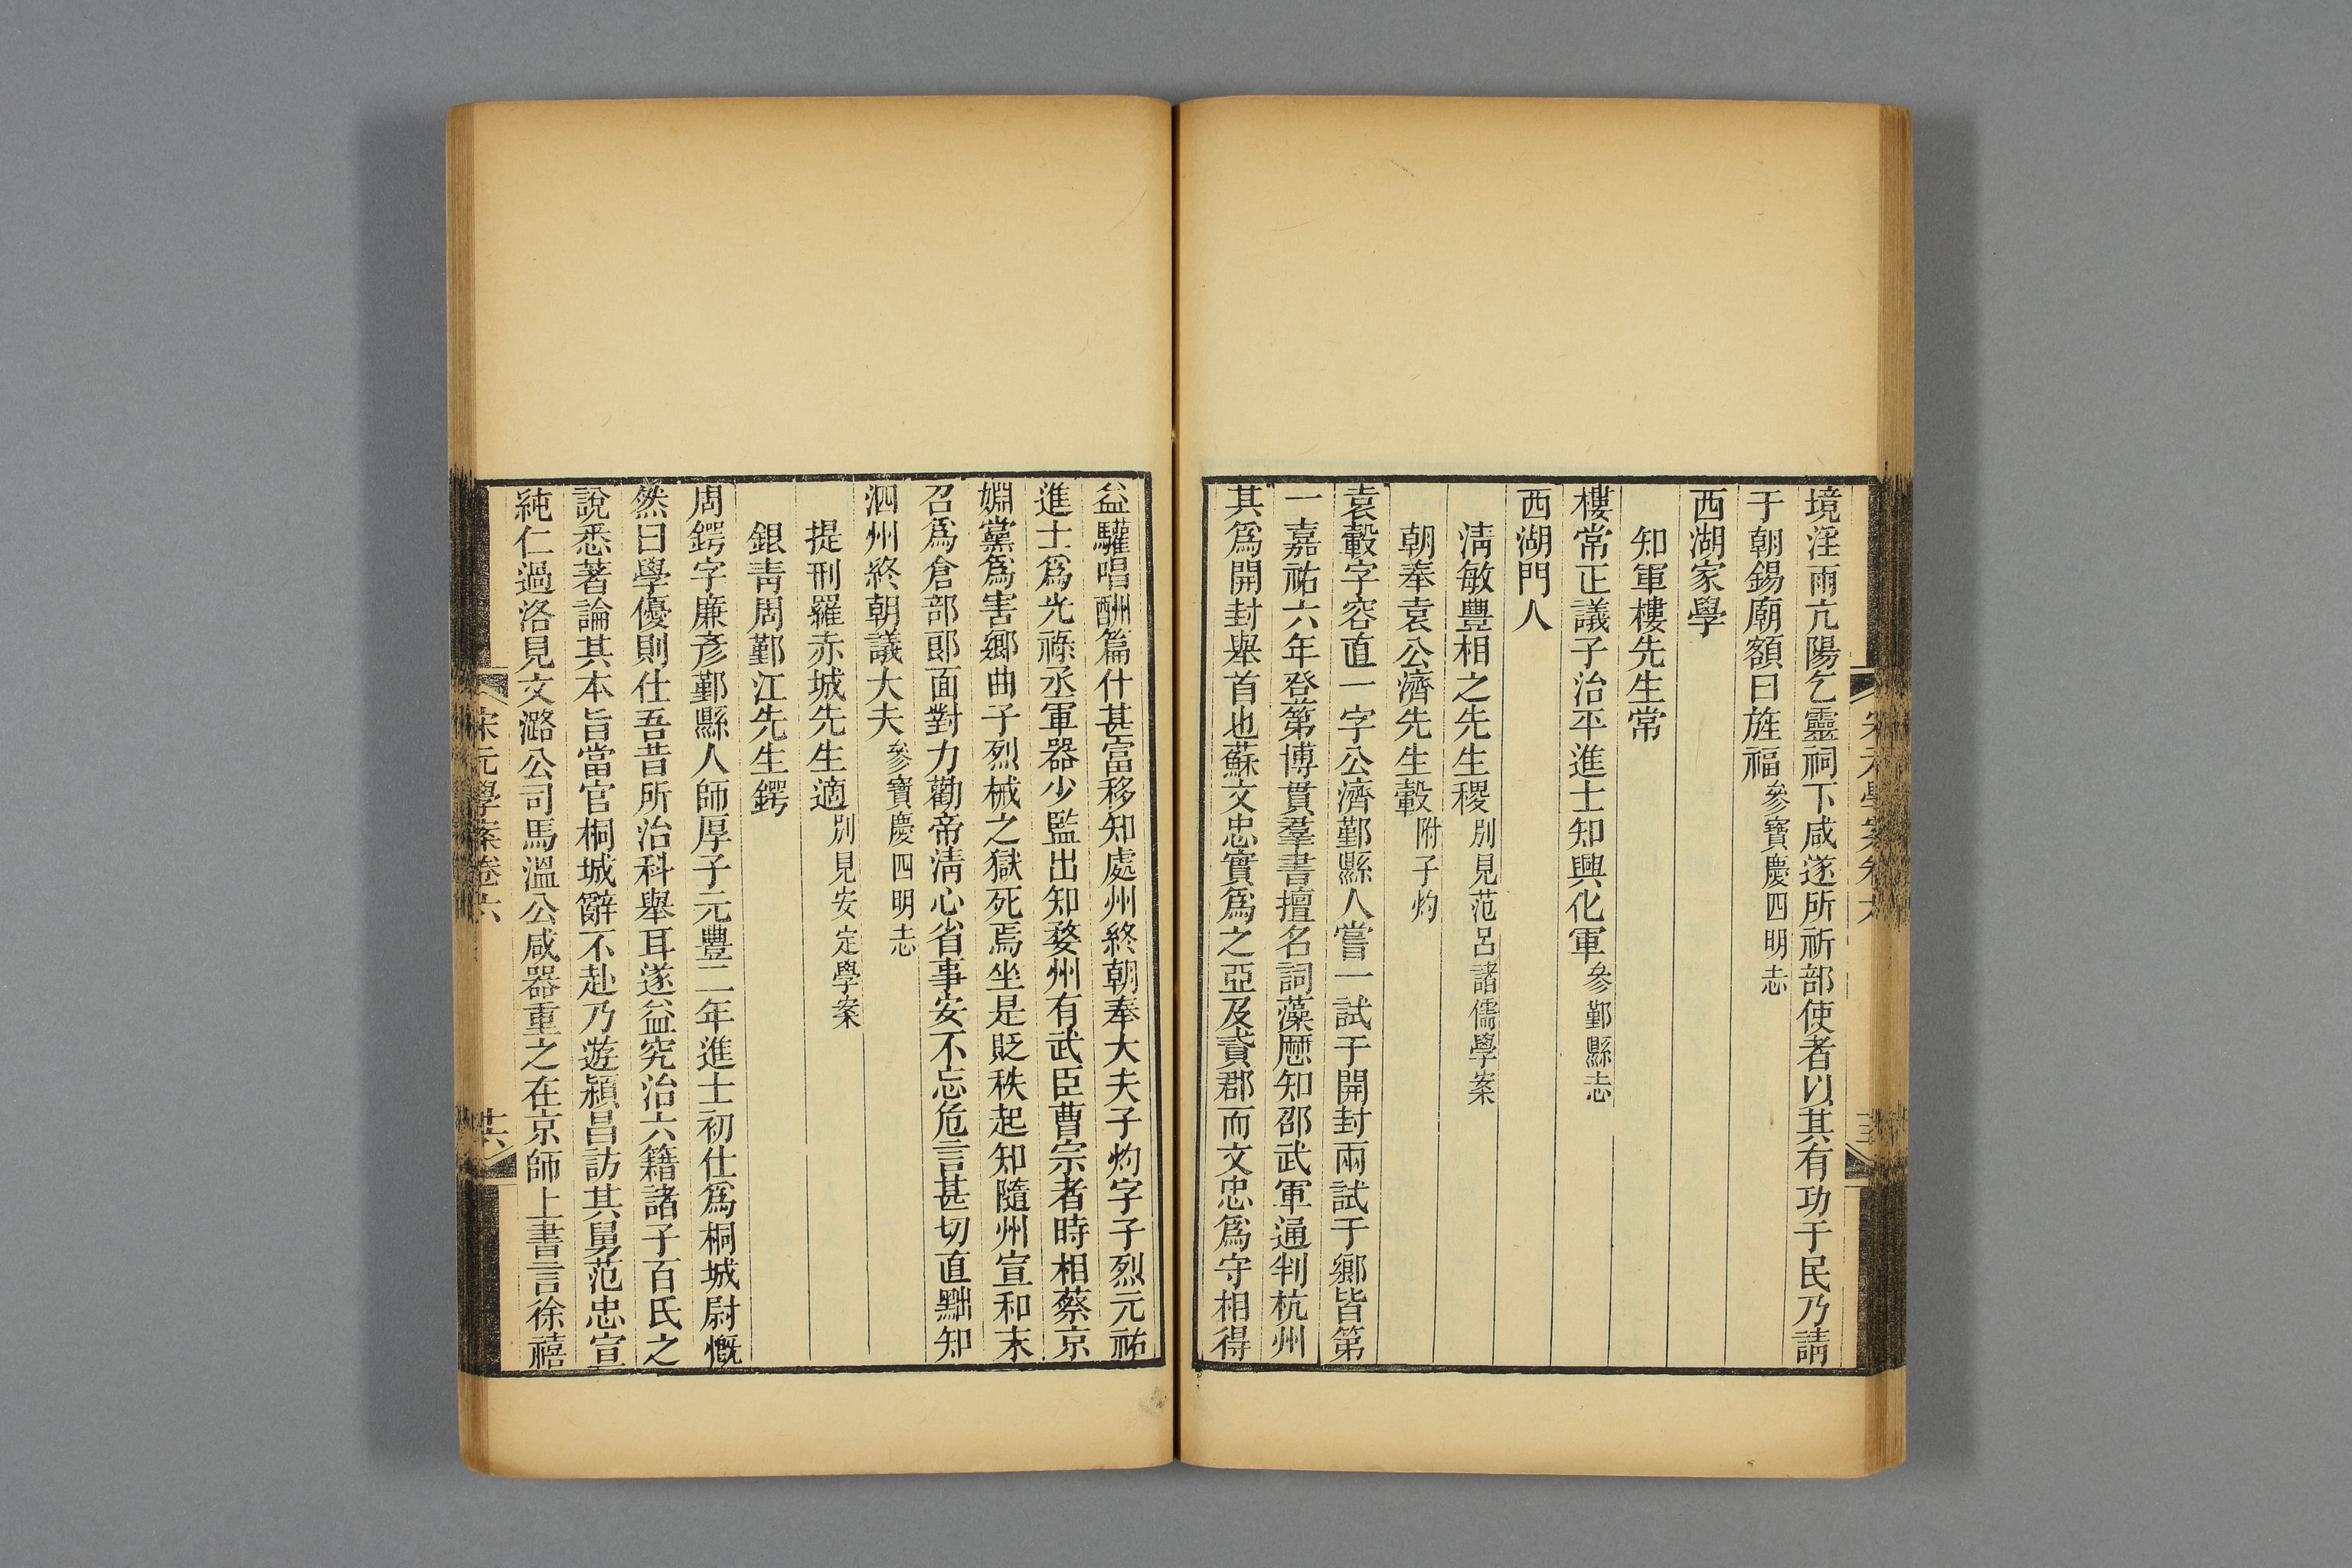 境淫雨亢陽乞靈祠下咸遂所祈部使者以其有功于民乃請
于朝錫廟額曰旌福參寶慶四明志
西湖家學
知軍樓先生常
樓常正議子治平進士知興化軍參鄞縣志
西湖門人
清敏豐相之先生稷別見范呂諸儒學案
朝奉袁公濟先生轂附子灼
袁轂字容直一字公濟鄞縣人嘗一試于開封兩試于鄉皆第
一嘉祐六年登第博貫羣書擅名詞藻歷知邵武軍通判杭州
其爲開封舉首也蘇文忠實爲之亞及貳郡而文忠爲守相得
益驩唱酬篇什甚富移知處州終朝奉大夫子灼字子烈元祐
進士爲光祿丞軍器少監出知婺州有武臣曹宗者時相蔡京
姻黨爲害鄉曲子烈械之獄死焉坐是貶秩起知隨州宣和末
召爲倉部郎面對力勸帝清心省事安不忘危言甚切直黜知
泗州終朝議大夫參寶慶四明志
提刑羅赤城先生適別見安定學案
銀青周鄞江先生鍔
周鍔字廉彥鄞縣人師厚子元豐二年進士初仕爲桐城尉慨
然曰學優則仕吾昔所治科舉耳遂益究治六籍諸子百氏之
說悉著論其本旨當官桐城辭不赴乃遊潁昌訪其舅范忠宣
純仁過洛見文潞公司馬溫公咸器重之在京師上書言徐禧
宋元學案卷六
廿六